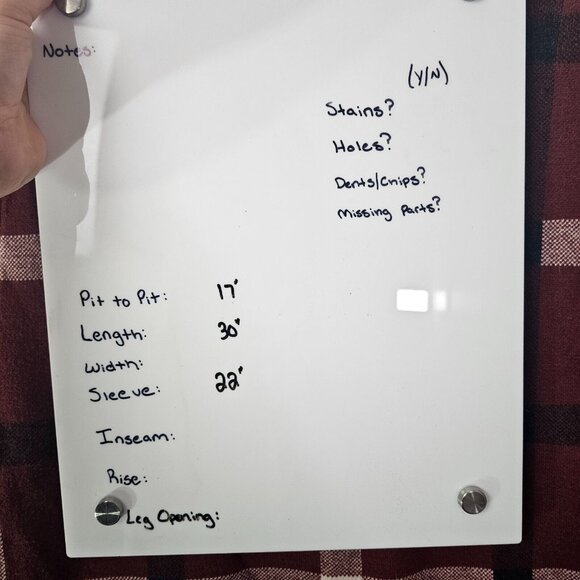 Notes:
(Y/N)
Stains?
Holes?
Dents/Chips?
Missing Parts?
Pit to Pit: 17"
Length: 30"
Width:
Sleeve: 22"
Inseam:
Rise:
Leg Opening: